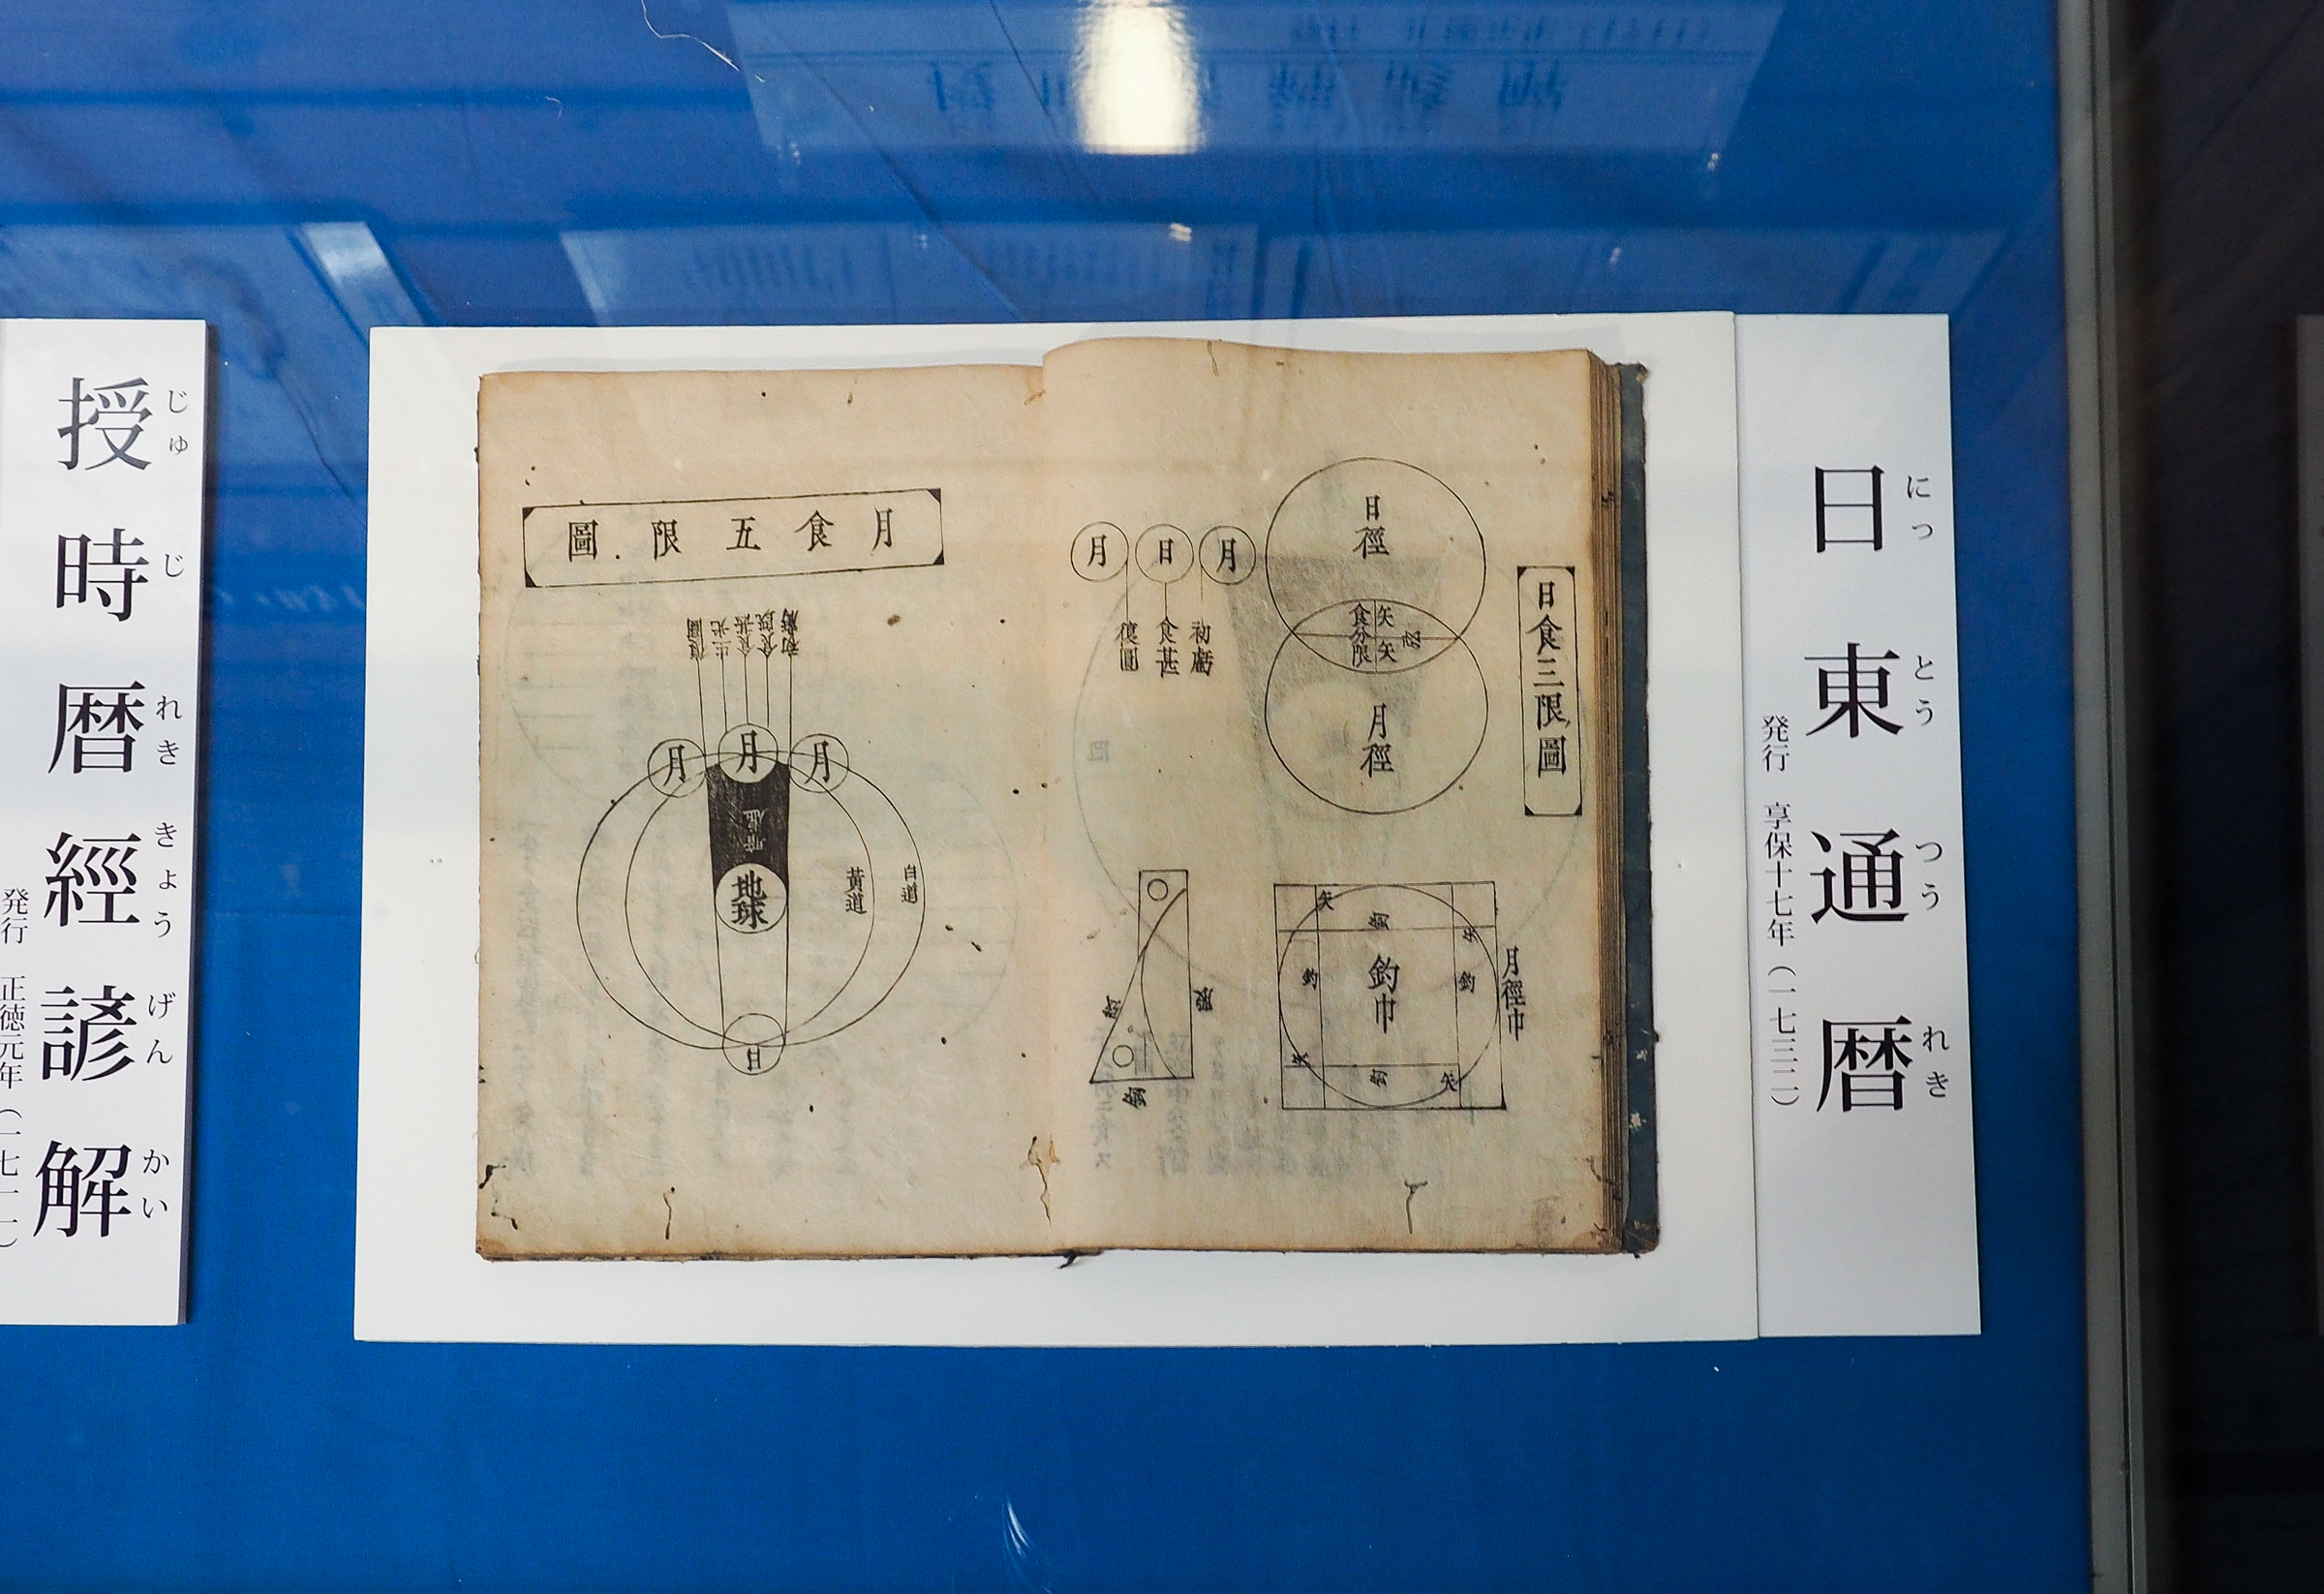 日東通暦
にっとうつうれき
発行 享保十七年（一七三二）
日食三限圖
日徑
食分限
矢
矢
月徑
月
日
月
初虧
食甚
復圓
月徑巾
釣巾
矢
釣
矢
釣
釣
矢
釣
矢
月食五限圖
初虧
食既
食甚
生光
復圓
月
月
月
闇虚
地球
黃道
白道
日
授時暦經諺解
じゅじれききょうげんかい
発行 正徳元年（一七一一）